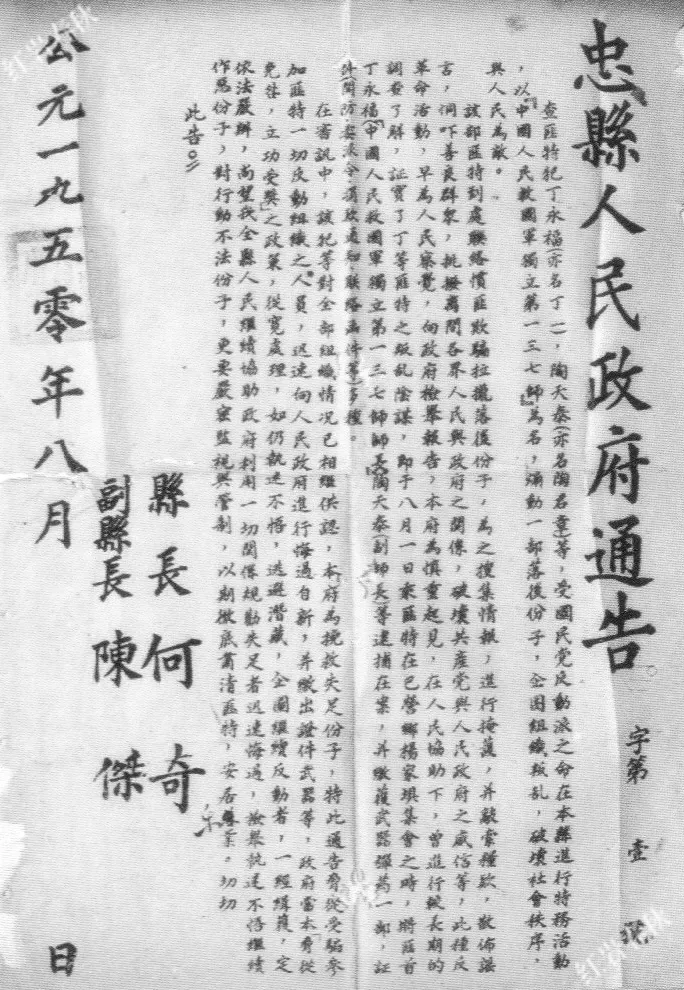 忠縣人民政府通告
字第 壹 號
查匪特犯丁永福(亦名丁一),陶天泰(亦名陶名章)等,受國民党反動派之命在本縣進行特務活動
,以『中國人民救國軍獨立第一三七師』為名,煽動一部落後份子,企图組織叛乱,破壞社會秩序,
與人民為敵。
該部匪特到處聯絡慣匪欺騙拉攏落後份子,為之搜集情報,進行掩護,并敲索糧欵,散佈謡
言,恫吓善良群衆,挑撥离間各界人民與政府之関係,破壞共産党與人民政府之威信等,此種反
革命活動,早為人民察覺,向政府檢舉報告,本府為慎重起見,在人民協助下,曾進行較長期的
調查了解,証實了丁等匪特之叛乱陰謀,即于八月一日乘匪特在巴營鄉楊家垻集會之時,將匪首
丁永福(中國人民救國軍獨立第一三七師師長)陶天泰(副師長)等逮捕在案,并繳獲武器彈药一部,証
件関防,委派令,捐欵通知,聯絡函件等多種。
在審訊中,該犯等對全部組織情况已相繼供認,本府為挽救失足份子,特此通告脅從受騙参
加匪特一切反動組織之人員,迅速向人民政府進行悔過自新,并繳出證件武器等,政府當本脅從
免咎,立功受獎之政策,從寬處理,如仍執迷不悟,逃避潜藏,企圖繼續反動者,一經緝獲,定
依法嚴辦,尚望我全縣人民繼續協助政府利用一切関係規勸失足者迅速悔過,檢舉執迷不悟繼續
作惡份子,對行動不法份子,更要嚴密監視與管制,以期澈底肅清匪特,安居樂業。切切
此告。
縣長 何奇
副縣長 陳傑
公元一九五零年八月 日